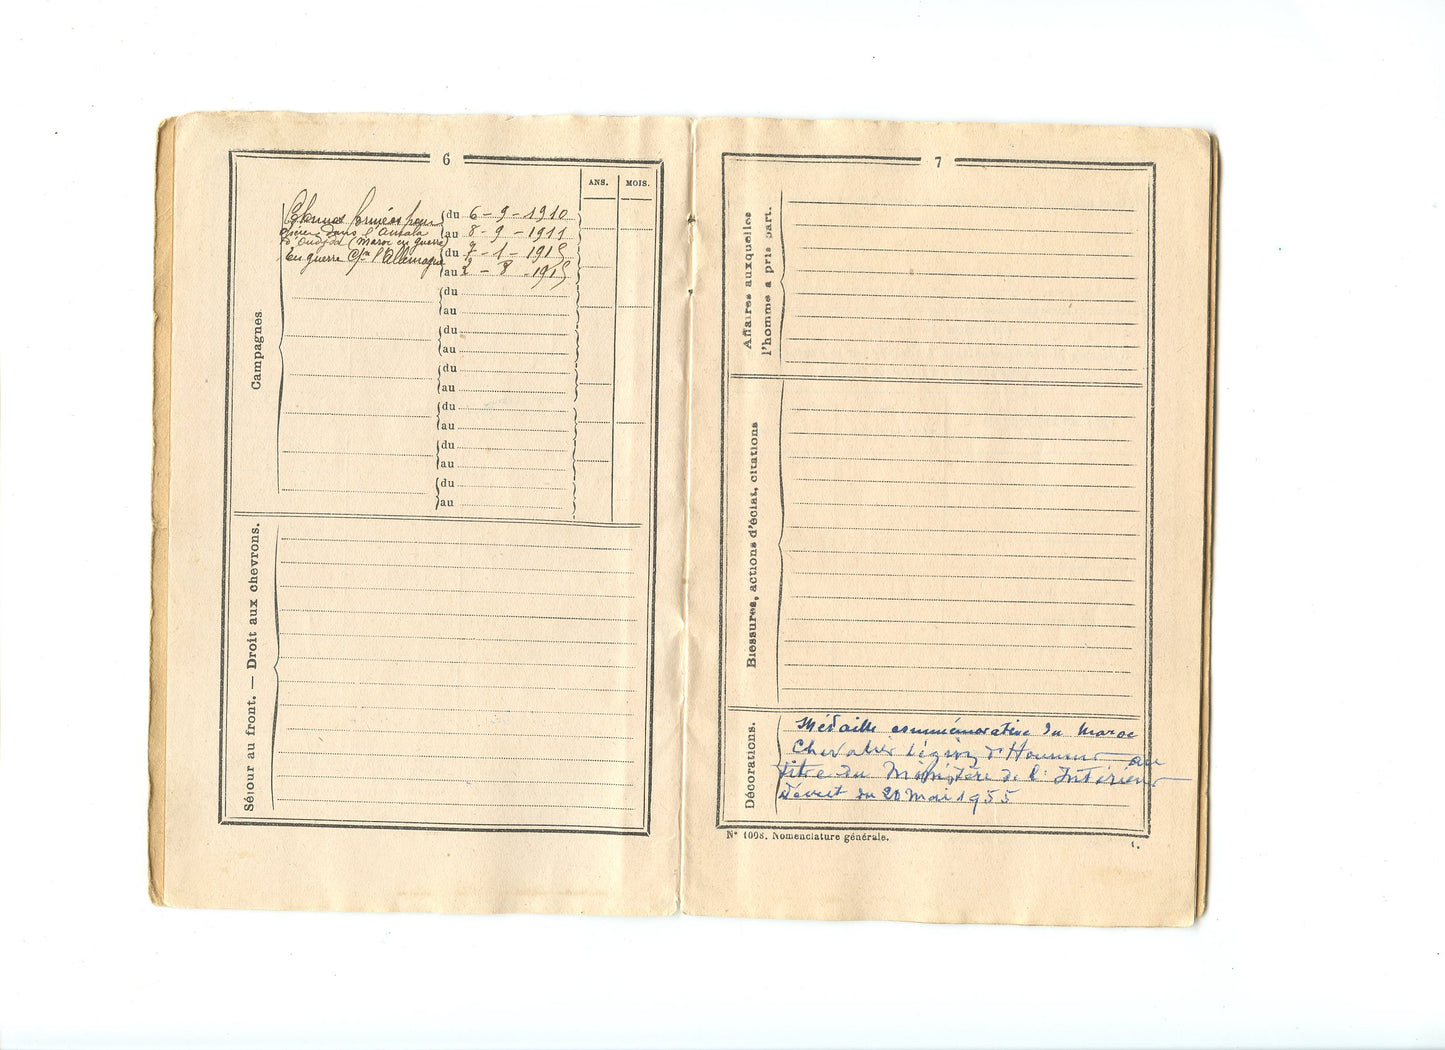 6
ANS. MOIS.
Campagnes
Colonnes formées pour
dans l'Amala
d'Oudjda (Maroc en guerre)
En guerre Cre l'Allemagne
du 6-9-1910
au 8-9-1911
du 7-1-1915
au 2-8-1915
du
au
du
au
du
au
du
au
du
au
du
au
Séjour au front. — Droit aux chevrons.
7
Affaires auxquelles
l'homme a pris part.
Blessures, actions d'éclat, citations
Décorations.
Médaille commémorative du Maroc
Chevalier Légion d'Honneur au
titre du Ministère de l'Intérieur
Décret du 20 Mai 1955
N° 1098. Nomenclature générale.
1.